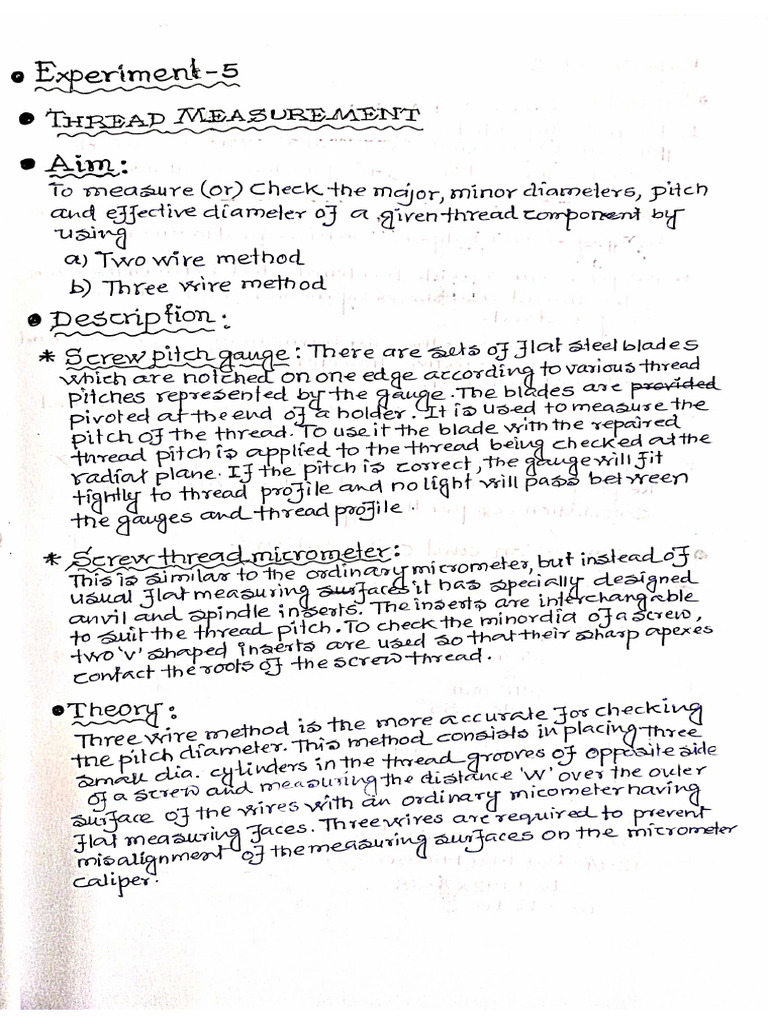 • Experiment-5
• THREAD MEASUREMENT
• Aim:
To measure (or) Check the major, minor diameters, pitch
and effective diameter of a given thread component by
using
a) Two wire method
b) Three wire method
• Description:
* Screw pitch gauge: There are sets of flat steel blades
which are notched on one edge according to various thread
pitches represented by the gauge. The blades are provided
pivoted at the end of a holder. It is used to measure the
pitch of the thread. To use it the blade with the repaired
thread pitch is applied to the thread being checked at the
radial plane. If the pitch is correct, the gauge will fit
tightly to thread profile and no light will pass between
the gauges and thread profile.
* Screw thread micrometer:
This is similar to the ordinary micrometer, but instead of
usual flat measuring surfaces it has specially designed
anvil and spindle inserts. The inserts are interchangable
to suit the thread pitch. To check the minor dia of a screw,
two 'v' shaped inserts are used so that their sharp apexes
contact the roots of the screw thread.
• Theory:
Three wire method is the more accurate for checking
the pitch diameter. This method consists in placing three
small dia. cylinders in the thread grooves of opposite side
of a screw and measuring the distance 'W' over the outer
surface of the wires with an ordinary micometer having
flat measuring faces. Three wires are required to prevent
misalignment of the measuring surfaces on the micrometer
caliper.